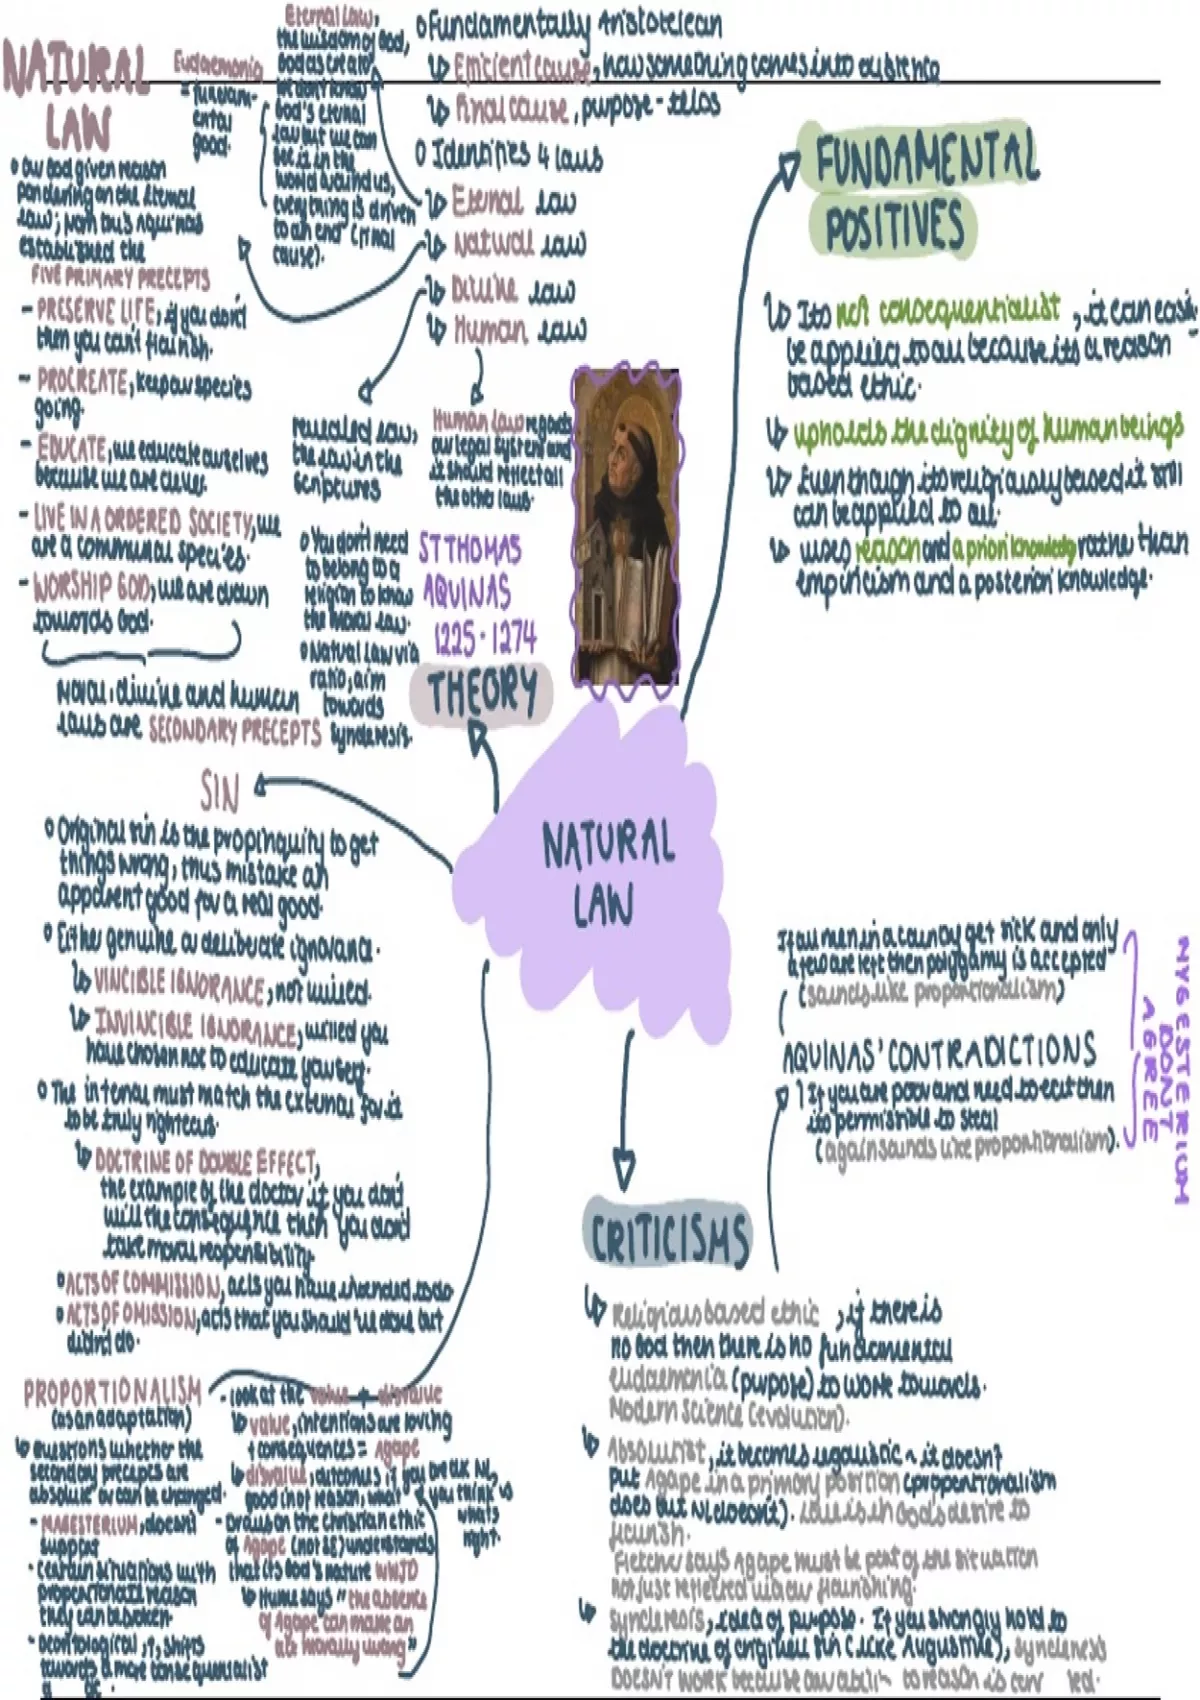 NATURAL
LAW
Eudaemonia
= fundam-
ental
good.
Eternal law,
the wisdom of God,
God as creator
we don't know
God's eternal
law but we can
see it in the
world around us,
everything is driven
to an end (final
cause).
o Fundamentally Aristotelean
↳ Efficient cause, how something comes into existence
↳ Final cause, purpose - telos
o Identifies 4 laws
↳ Eternal law
↳ Natural law
↳ Divine law
↳ Human law
o Our God given reason
pondering on the Eternal
law, from this Aquinas
established the
FIVE PRIMARY PRECEPTS
- PRESERVE LIFE, if you don't
then you can't flourish.
- PROCREATE, keep our species
going.
- EDUCATE, we educate ourselves
because we are clever.
- LIVE IN A ORDERED SOCIETY, we
are a communal species.
- WORSHIP GOD, we are drawn
towards God.
Moral, divine and human
laws are SECONDARY PRECEPTS
revealed law,
the law in the
scriptures
Human law regards
our legal system and
it should reflect all
the other laws.
o You don't need
to belong to a
religion to know
the Moral law.
o Natural law via
ratio, aim
towards
synderesis.
ST THOMAS
AQUINAS
1225 - 1274
THEORY
FUNDAMENTAL
POSITIVES
↳ Its not consequentialist, it can easily
be applied to all because its a reason
based ethic.
↳ upholds the dignity of human beings
↳ Even though its religiously based it still
can be applied to all.
↳ uses reason and a priori knowledge rather than
empiricism and a posteriori knowledge.
NATURAL
LAW
SIN
o Original sin is the propinquity to get
things wrong, thus mistake an
apparent good for a real good.
o Either genuine or deliberate ignorance.
↳ VINCIBLE IGNORANCE, not willed.
↳ INVINCIBLE IGNORANCE, willed you
have chosen not to educate yourself.
o The internal must match the external for it
to be truly righteous.
↳ DOCTRINE OF DOUBLE EFFECT,
the example of the doctor, if you don't
will the consequence then you don't
take moral responsibility.
o ACTS OF COMMISSION, acts you have intended to do
o ACTS OF OMISSION, acts that you should've done but
didn't do.
PROPORTIONALISM
(as an adaptation)
↳ questions whether the
secondary precepts are
absolute or can be changed.
- MAGESTERIUM, doesn't
support
- certain situations with
proportionate reason
they can be broken
- deontological, shifts
towards a more consequentialist
- look at the value + disvalue
↳ value, intentions are loving
+ consequences = Agape
↳ disvalue, outcomes if you break NL,
good (not reason, what
you think is
what's
right.
- Draws on the christian ethic
of Agape (not SE) understands
that its God's nature WWJD
↳ Hume says "the absence
of Agape can make an
act morally wrong"
If all men in a county get sick and only
a few are left then polygamy is accepted
(sounds like proportionalism)
AQUINAS' CONTRADICTIONS
If you are poor and need to eat then
its permissible to steal
(again sounds like proportionalism).
MYGESTERIUM
DONT
AGREE
CRITICISMS
↳ Religious based ethic, if there is
no God then there is no fundamental
eudaemonia (purpose) to work towards.
Modern Science (evolution).
↳ Absolutist, it becomes legalistic ~ it doesn't
put Agape in a primary position (proportionalism
does but NL doesn't). Love is in God's desire to
flourish.
Fletcher says Agape must be part of the situation
not just reflected via our flourishing.
↳ synderesis, idea of purpose. If you strongly hold to
the doctrine of original sin (like Augustine), synderesis
DOESN'T WORK because our ability to reason is